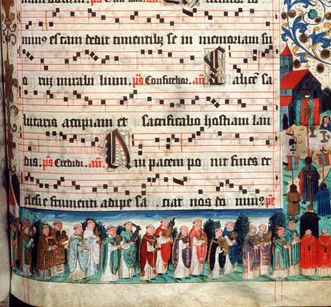 minus escam dedit timentibus se in memoriam su
o rum mirabi lium. ps Confitebor. an Calicē sa
lutaris accipiam et sacrificabo hostiam lau
dis. ps Credidi. an Qui pacem po nit fines ec
clesie frumenti adipe sa ciat nos do minus ps